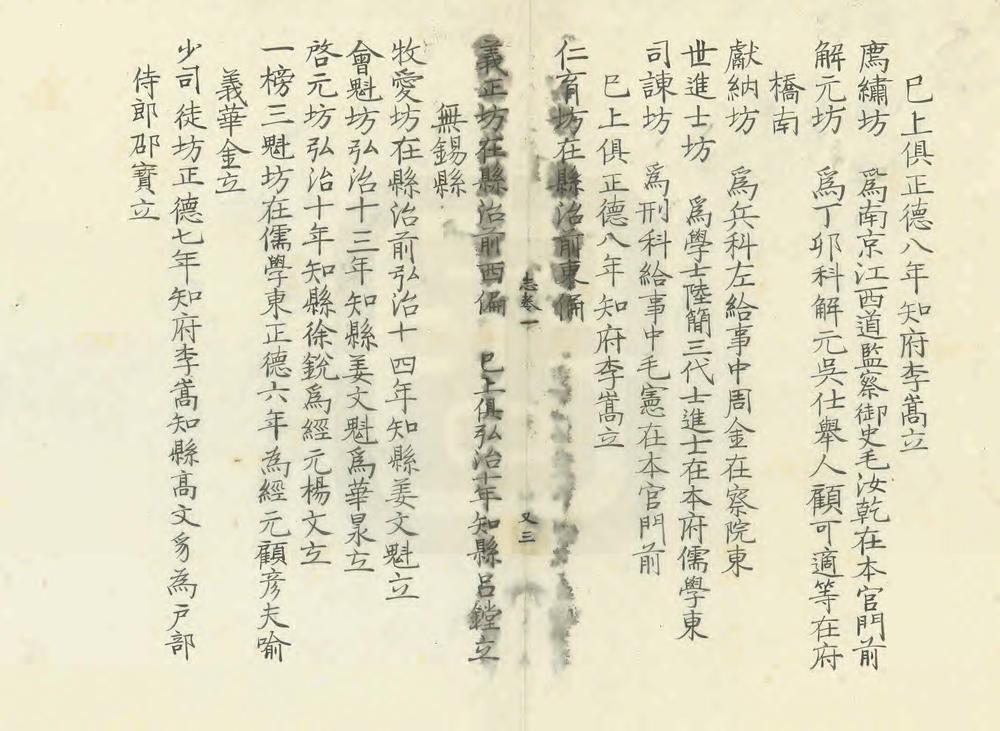 已上俱正德八年知府李嵩立
廌繡坊　爲南京江西道監察御史毛汝乾在本官門前
解元坊　爲丁卯科解元吳仕舉人顧可適等在府
橋南
獻納坊　爲兵科左給事中周金在察院東
世進士坊　爲學士陸簡三代士進士在本府儒學東
司諫坊　爲刑科給事中毛憲在本官門前
已上俱正德八年知府李嵩立
仁育坊在縣治前東偏
志卷一
又三
義正坊在縣治前西偏　已上俱弘治十年知縣呂鏜立
無錫縣
牧愛坊在縣治前弘治十四年知縣姜文魁立
會魁坊弘治十三年知縣姜文魁爲華杲立
啓元坊弘治十年知縣徐銳爲經元楊文立
一榜三魁坊在儒學東正德六年為經元顧彥夫喻
義華金立
少司徒坊正德七年知府李嵩知縣高文豸為戸部
侍郎邵寳立